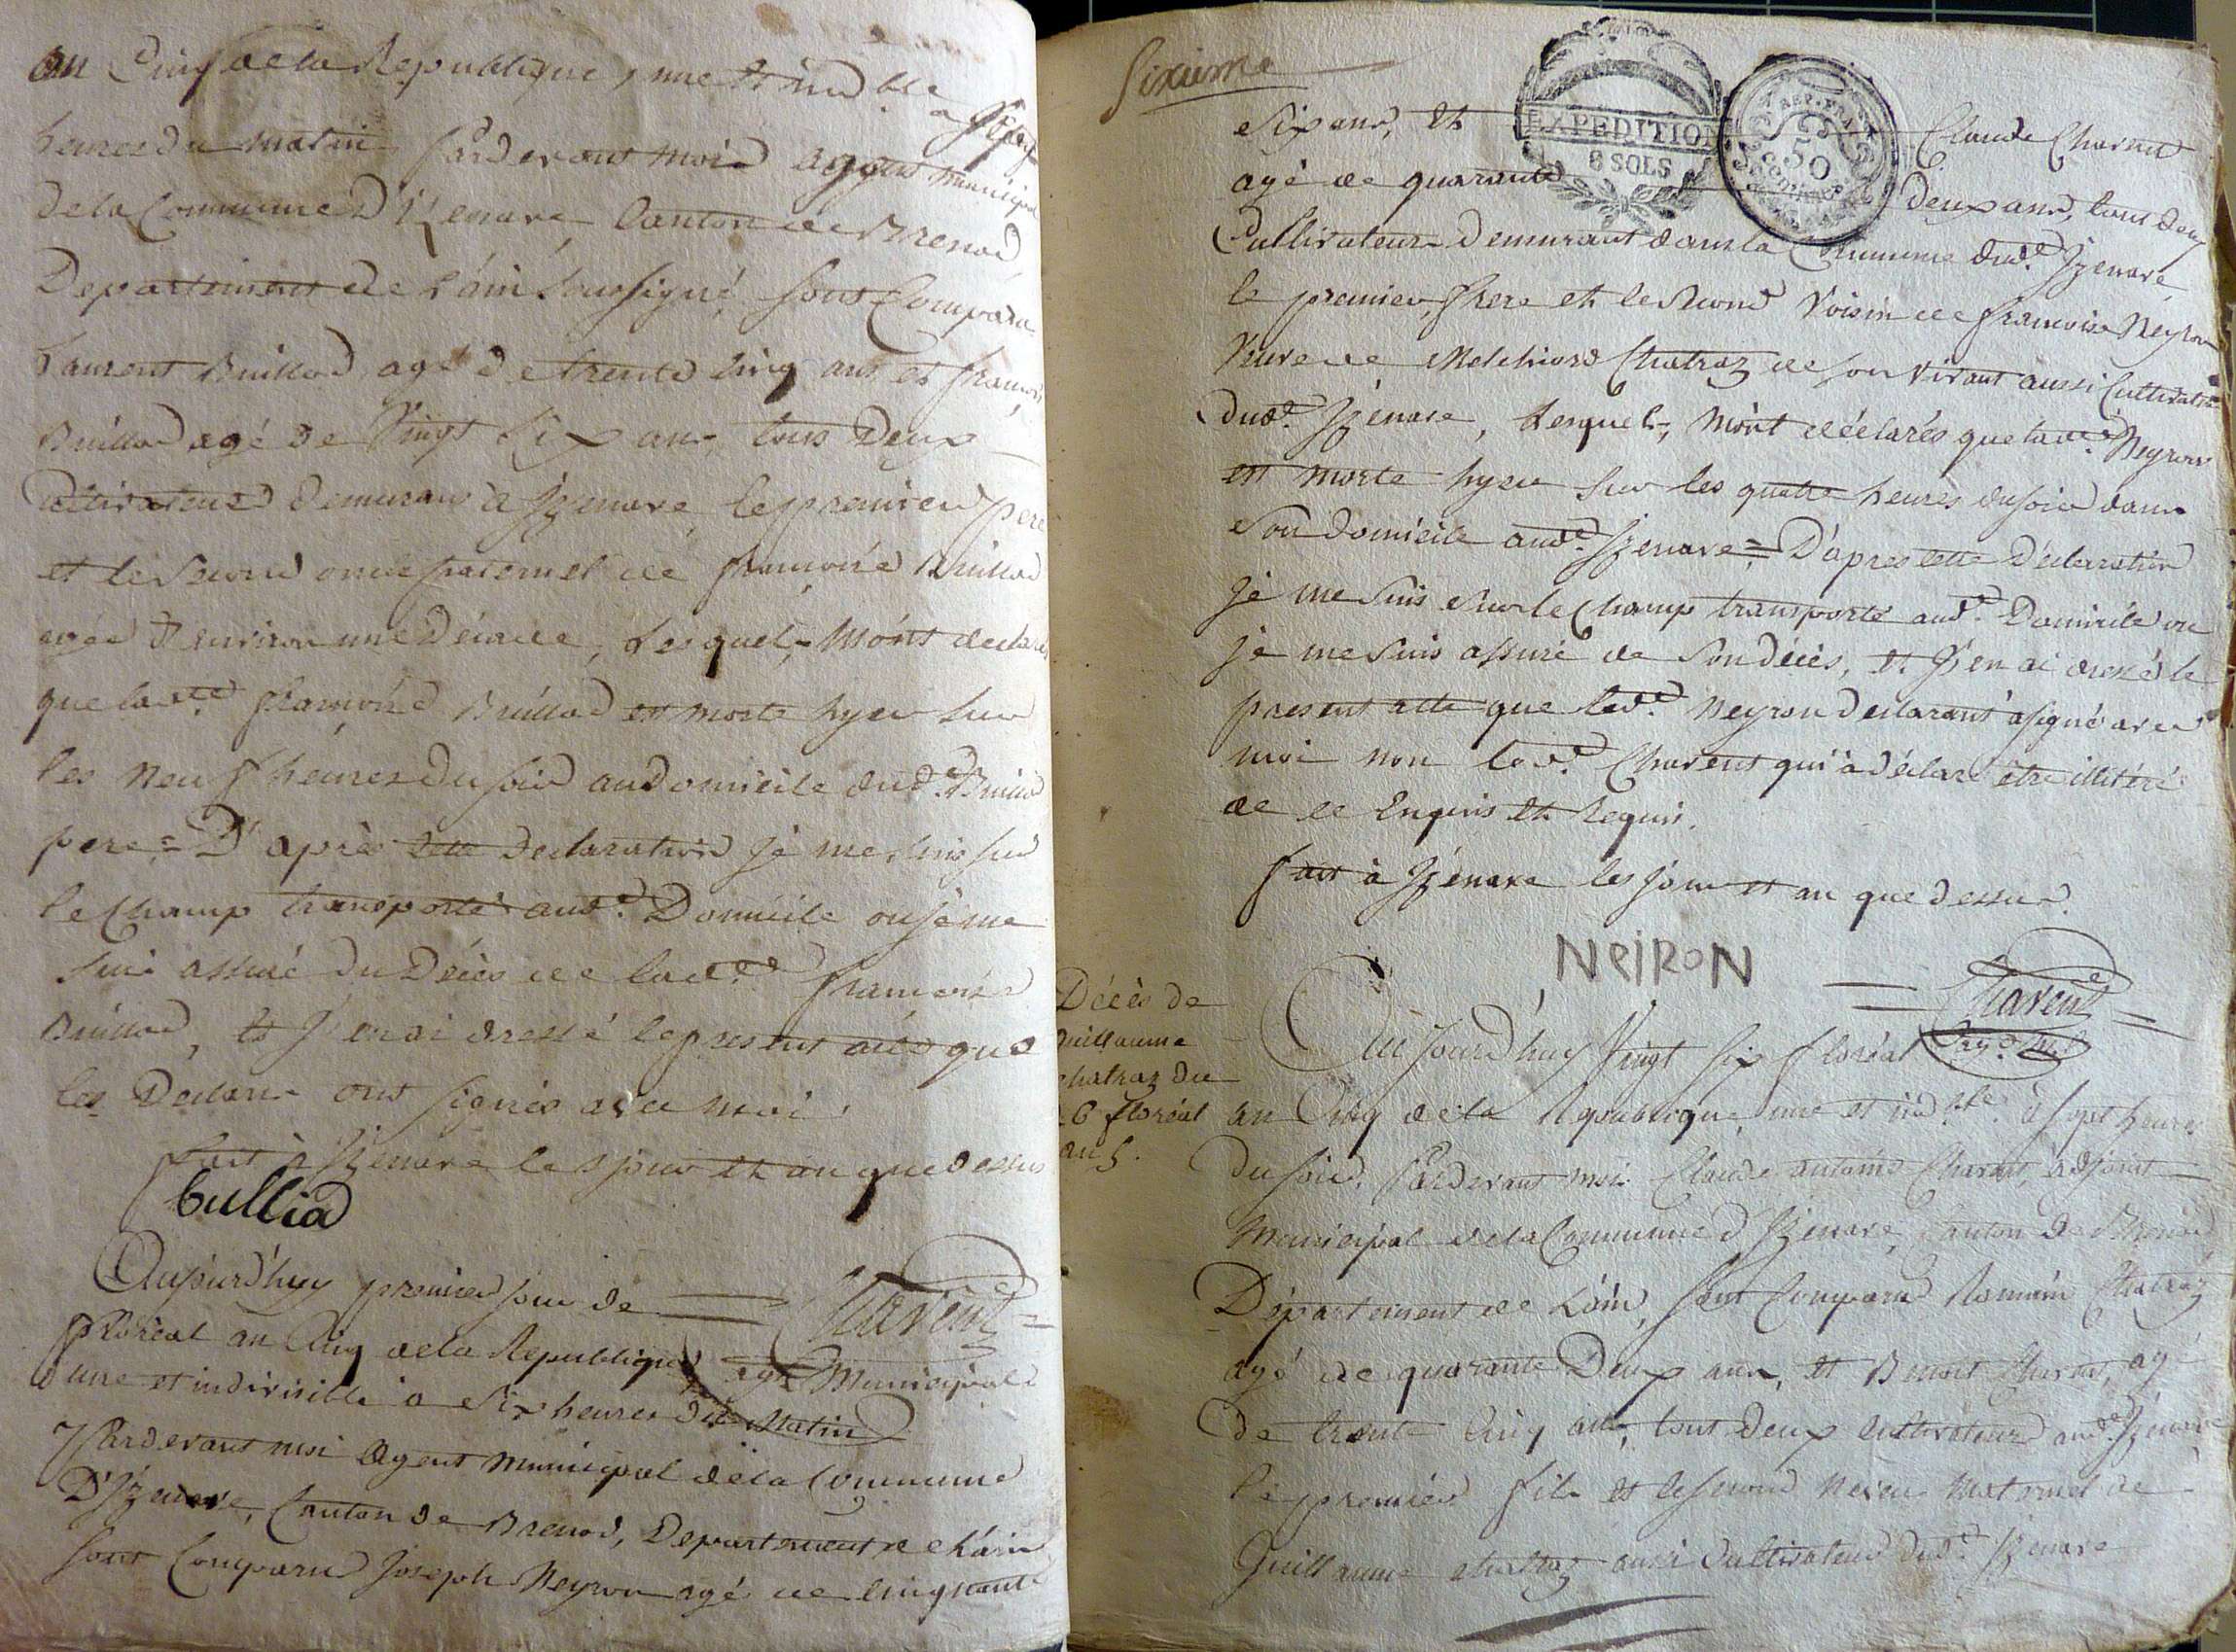 an Cinq de la Republique, une et ind.ble a sept
heures du matin Pardevant moi agent municipal
de la Commune d'izenave Canton de Brenod
Departement de L'ain soussigné, sont Comparu
Laurent Buillod, agé de trente cinq ans et françois
Buillod agé de Vingt Six ans, tous Deux
Cultivateurs demurans a Jzenave, le premier pere
et le second oncle paternel de françoise Buillod
agée d'environ une Décade, Lesquels m'ont declarés
que lad.te françoise Buillod est morte hyer sur
les neuf heures du soir au domicile dud.t Buillod
pere = D'après cette declaration je me suis sur
le Champ transporté aud.t Domicile ou je me
suis assuré du Décès de lad.te françoise
Buillod, et J'en ai dressé le present acte que
les Declarans ont signés avec moi.
fait à Jzenave les jour et an que dessus
bulliod
Aujourd'huy premier jour de = Charent =
floréal an Cinq de la Republique agt Municipal
une et indivisible a Six heures du Matin
Pardevant moi agent municipal de la Commune
D'Jzenave, Canton de Brenod, Departement de L'ain
sont Comparu Joseph Neyron agé de Cinquante
Sixieme
EXPEDITION
6 SOLS
REP. FRA
50
Six ans, et Claude Charent
agé de quarante Deux ans, tous deux
Cultivateurs demurant dans la Commune dud.t Jzenave
le premier, frere et le second Voisin de françoise Neyron
Veuve de Melchiord Chatraz de son vivant aussi Cultivateur
dud.t Jzenave, Lesquels, m'ont déclarés que lad.te Neyron
est morte hyer sur les quatre heures du soir dans
son domicile aud.t Jzenave = D'apres cette Déclaration
je me suis sur le Champ transporté aud.t Domicile ou
je me suis assuré de son décès, et J'en ai dressé le
present acte que led.t Neyron declarant a signé avec
moi non led.t Charent qui à déclaré être illitéré
de ce Enquis et Requis.
fait à Jzenave les jour et an que dessus.
NEIRON
= Charent =
ag.t M.l
Décès de
Guillaume
chatraz du
26 floréal
an 5.
Aujourd'huy Vingt six floréal
an Cinq de la Republique, une et ind.ble à sept heures
du soir, Pardevant moi Claude antoine Charent, adjoint
Municipal de la Commune d'Jzenave, Canton de Brenod
Département de L'ain, sont Comparu Romain Chatraz
agé de quarante Deux ans, et Benoit Charent, agé
de trente Cinq ans, tout deux cultivateurs aud.t Jzenave
le premier fils et le second neveu maternel de
Guillaume chatraz aussi Cultivateur dud.t Jzenave